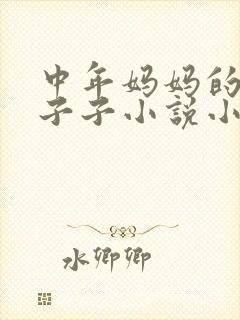 中年妈妈的
子子小説小
水卿卿